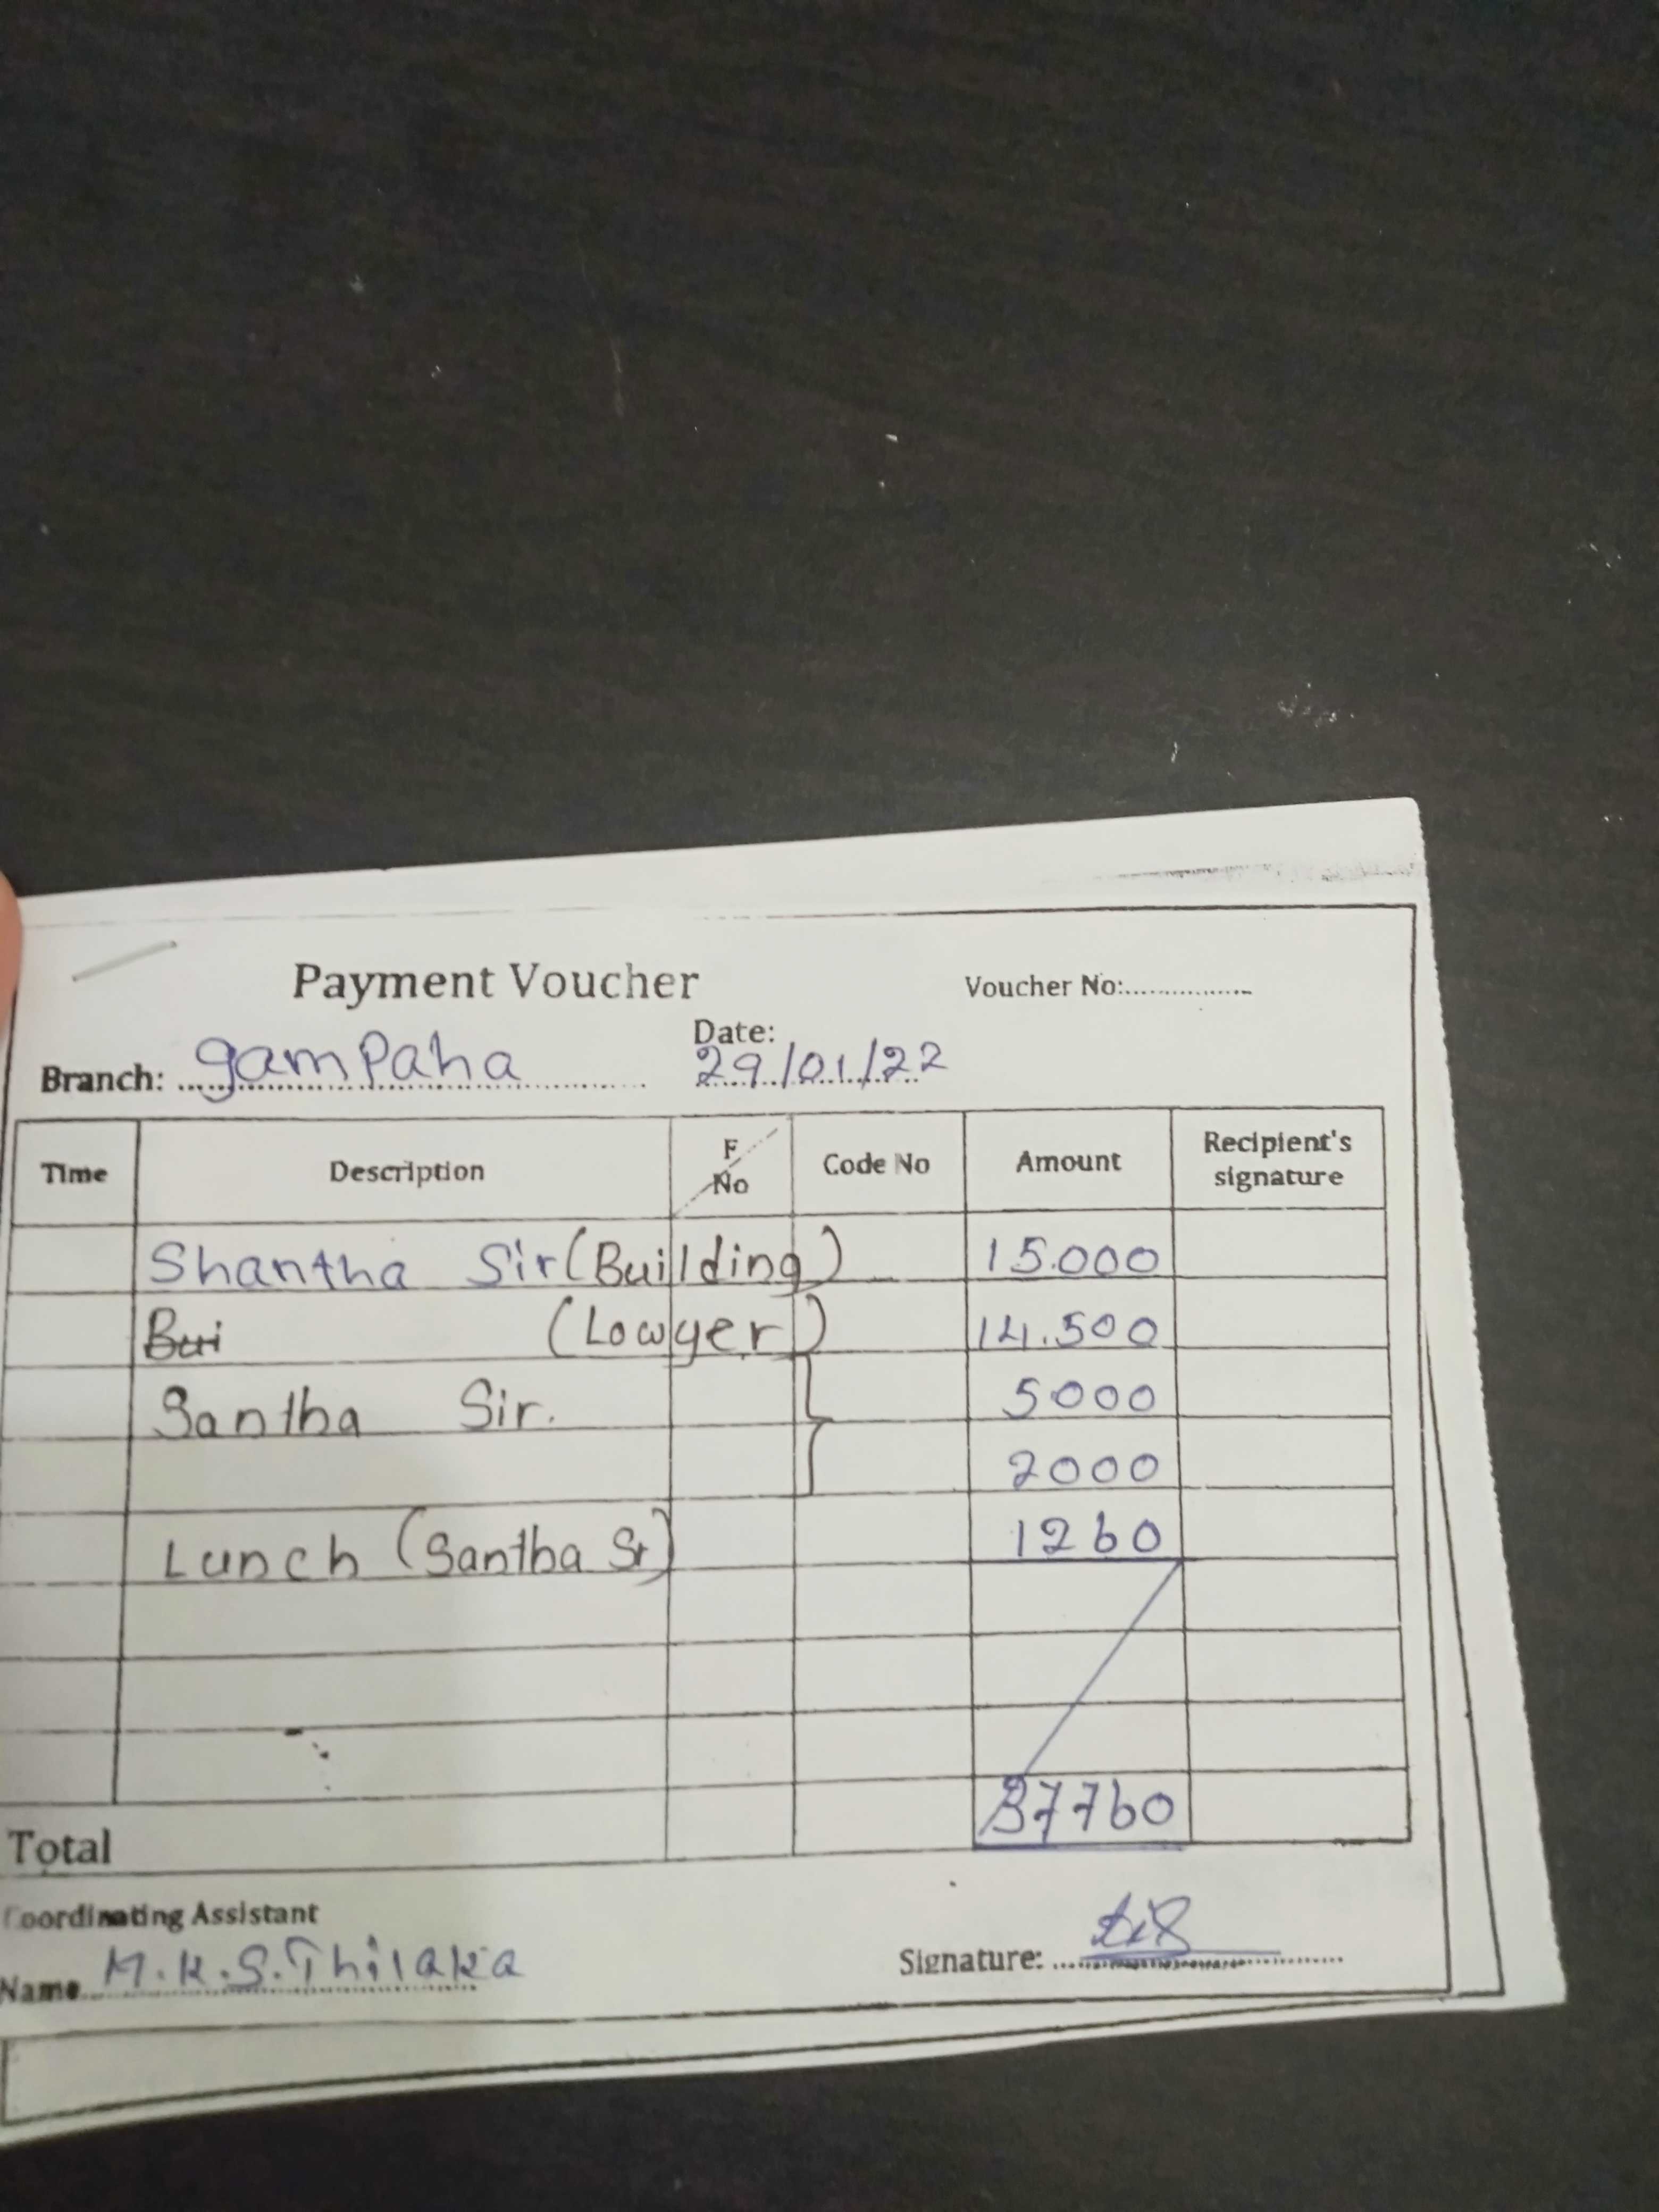 Payment Voucher Voucher No:................
Branch: gampaha Date: 29/01/22
Time Description F/No Code No Amount Recipient's signature
Shantha Sir (Building) 15.000
Bui (Lowyer) 14.500
Santha Sir. 5000
2000
Lunch (Santha Sr) 1260
Total 37760
Coordinating Assistant
Name M.K.S.Thilaka Signature: